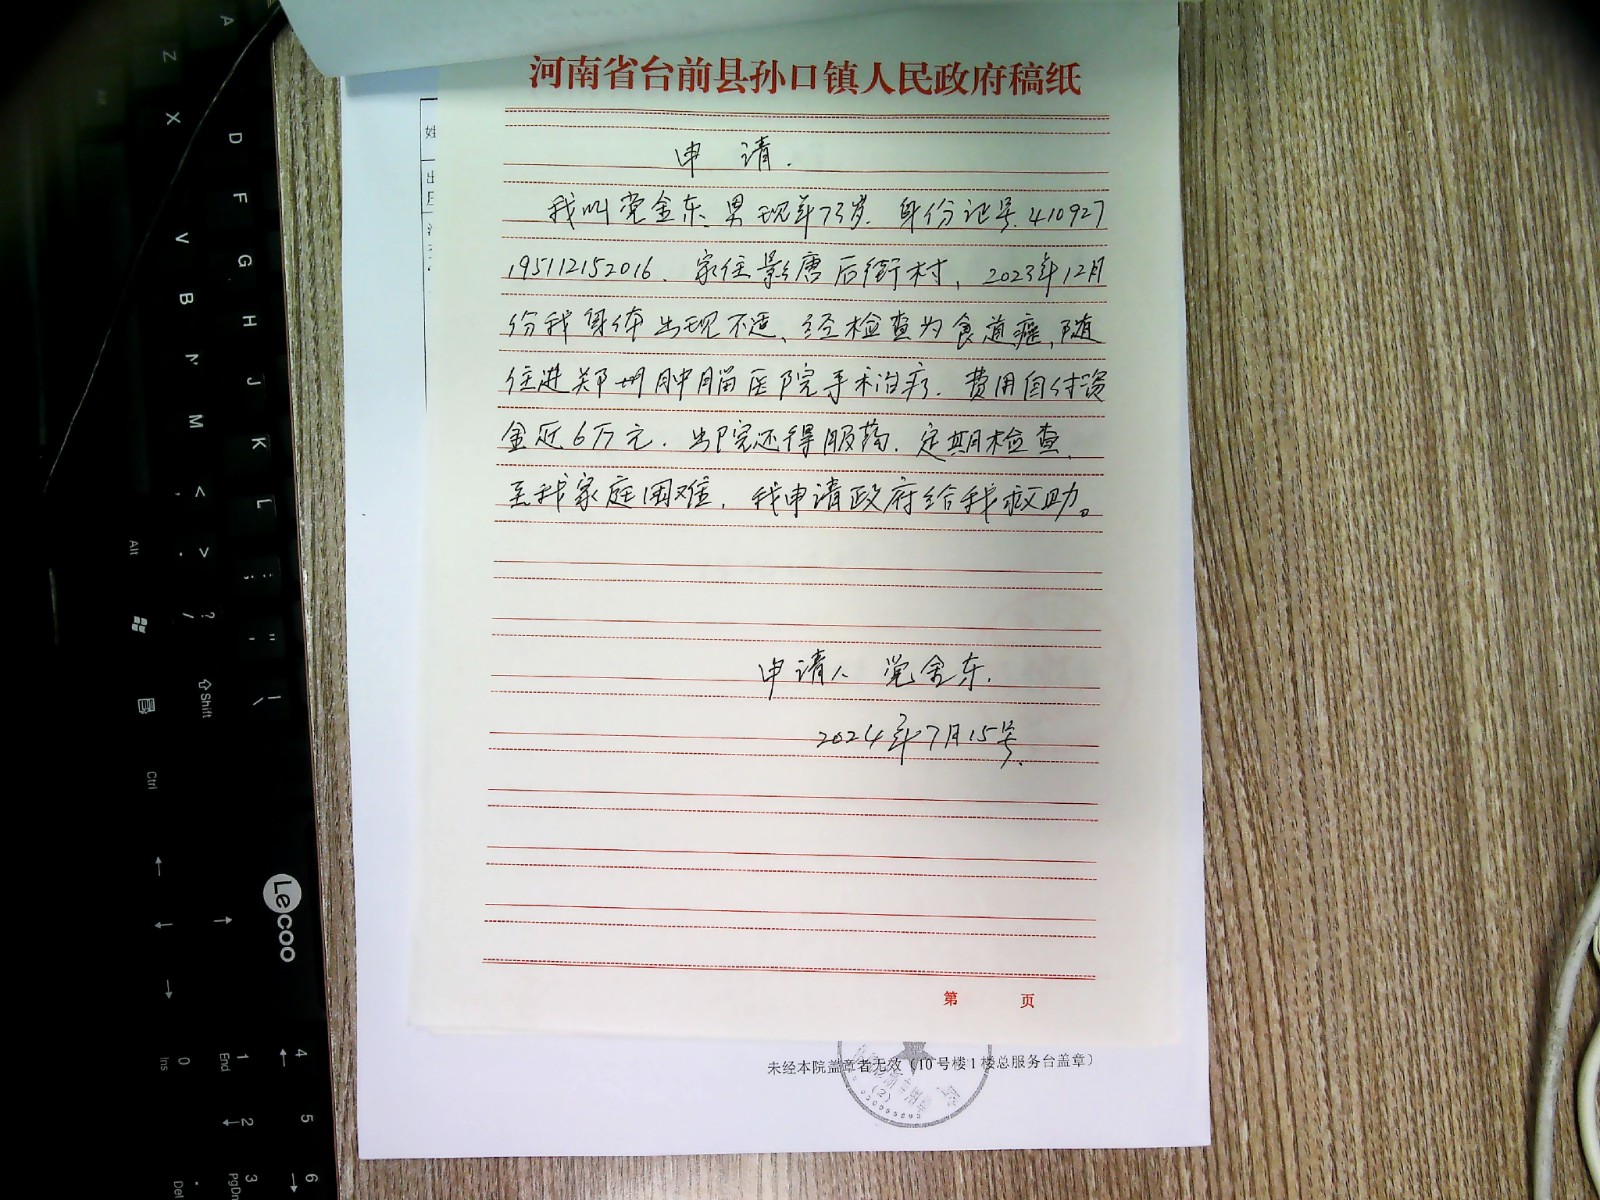 河南省台前县孙口镇人民政府稿纸
申 请.
我叫党金东、男 现年73岁. 身份证号.410927
195112152016. 家住影唐后街村, 2023年12月
份我身体出现不适、经检查为食道癌,随
住进郑州肿瘤医院手术治疗. 费用自付资
金近6万元. 出院还得服药. 定期检查.
至我家庭困难. 我申请政府给我救助。
申请人 党金东.
2024年7月15号.
第 页
未经本院盖章者无效（10号楼1楼总服务台盖章）
姓
出
Lecoo
A
Z
X
D
F
V
G
B
H
N
J
M
K
<
L
>
Alt
?
/
Shift
Ctrl
Ins
0
End
1
4
2
5
Del
3
PgDn
6